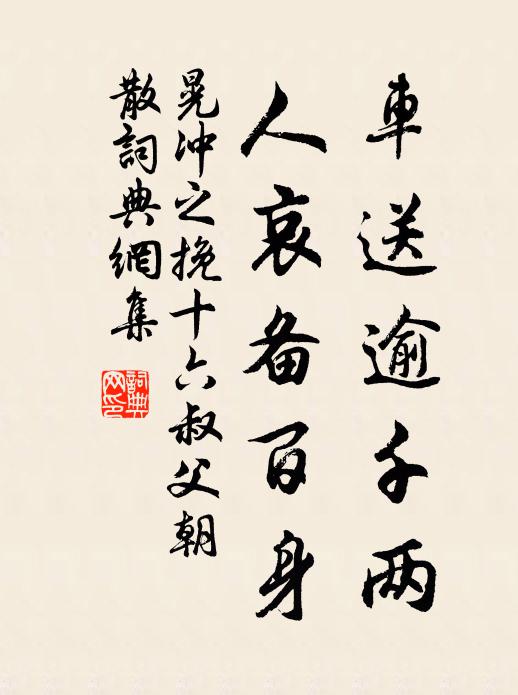 車送逾千两
人哀备百身
晃冲之挽十六叔父朝
散詞典網集
詞典
网印